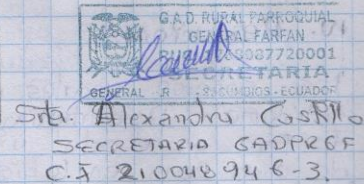 G.A.D. RURAL PARROQUIAL
GENERAL FARFAN
SECRETARIA
GENERAL - ECUADOR
Srta. Alexandra Castillo
SECRETARIA GADPRGF
C.I 210048946-3.